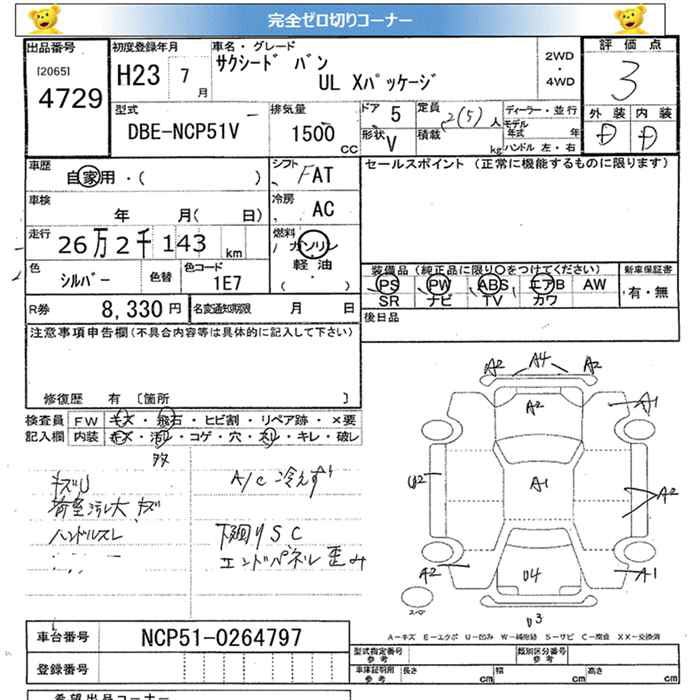 完全ゼロ切りコーナー
出品番号 初度登録年月 車名・グレード 2WD・4WD 評価点
[2065] 4729 H23 7月 サクシード バン UL Xパッケージ 3
型式 排気量 ドア 5 定員 2(5)人 ディーラー・並行 外装 内装
DBE-NCP51V 1500 CC 形状 V 積載 kg モデル年式 年 ハンドル 左・右 D D
車歴 自家用・( ) シフト FAT セールスポイント (正常に機能するものに限ります)
車検 年 月( 日) 冷房 AC
走行 26万2千143 km 燃料 ガソリン
軽・油 ( )
色 シルバー 色替 色コード 1E7
装備品(純正品に限り○をつけてください) 新車保証書
PS PW ABS エアB AW 有・無
SR ナビ TV カワ
R券 8,330円 名変通知期限 月 日 後日品
注意事項申告欄(不具合内容等は具体的に記入して下さい)
修復歴 有 [箇所 ]
検査員 FW キズ・飛石・ヒビ割・リペア跡・×要
記入欄 内装 キズ・汚レ・コゲ・穴・スレ・キレ・破レ
A/C 冷えず
荷室汚レ大 キズ
ハンドルスレ 下廻りSC
エンドパネル歪み
A2 A4 A2
A2 A1
U2 A1 A2
A2 U4 A1
スペア U3
A-キズ E-エクボ U-凹み W-補修跡 S-サビ C-腐食 XX-交換済
車台番号 NCP51-0264797
型式指定番号 参考 類別区分番号 参考
登録番号 車庫証明用 参考 長さ cm 幅 cm 高さ cm
希望出品コーナー